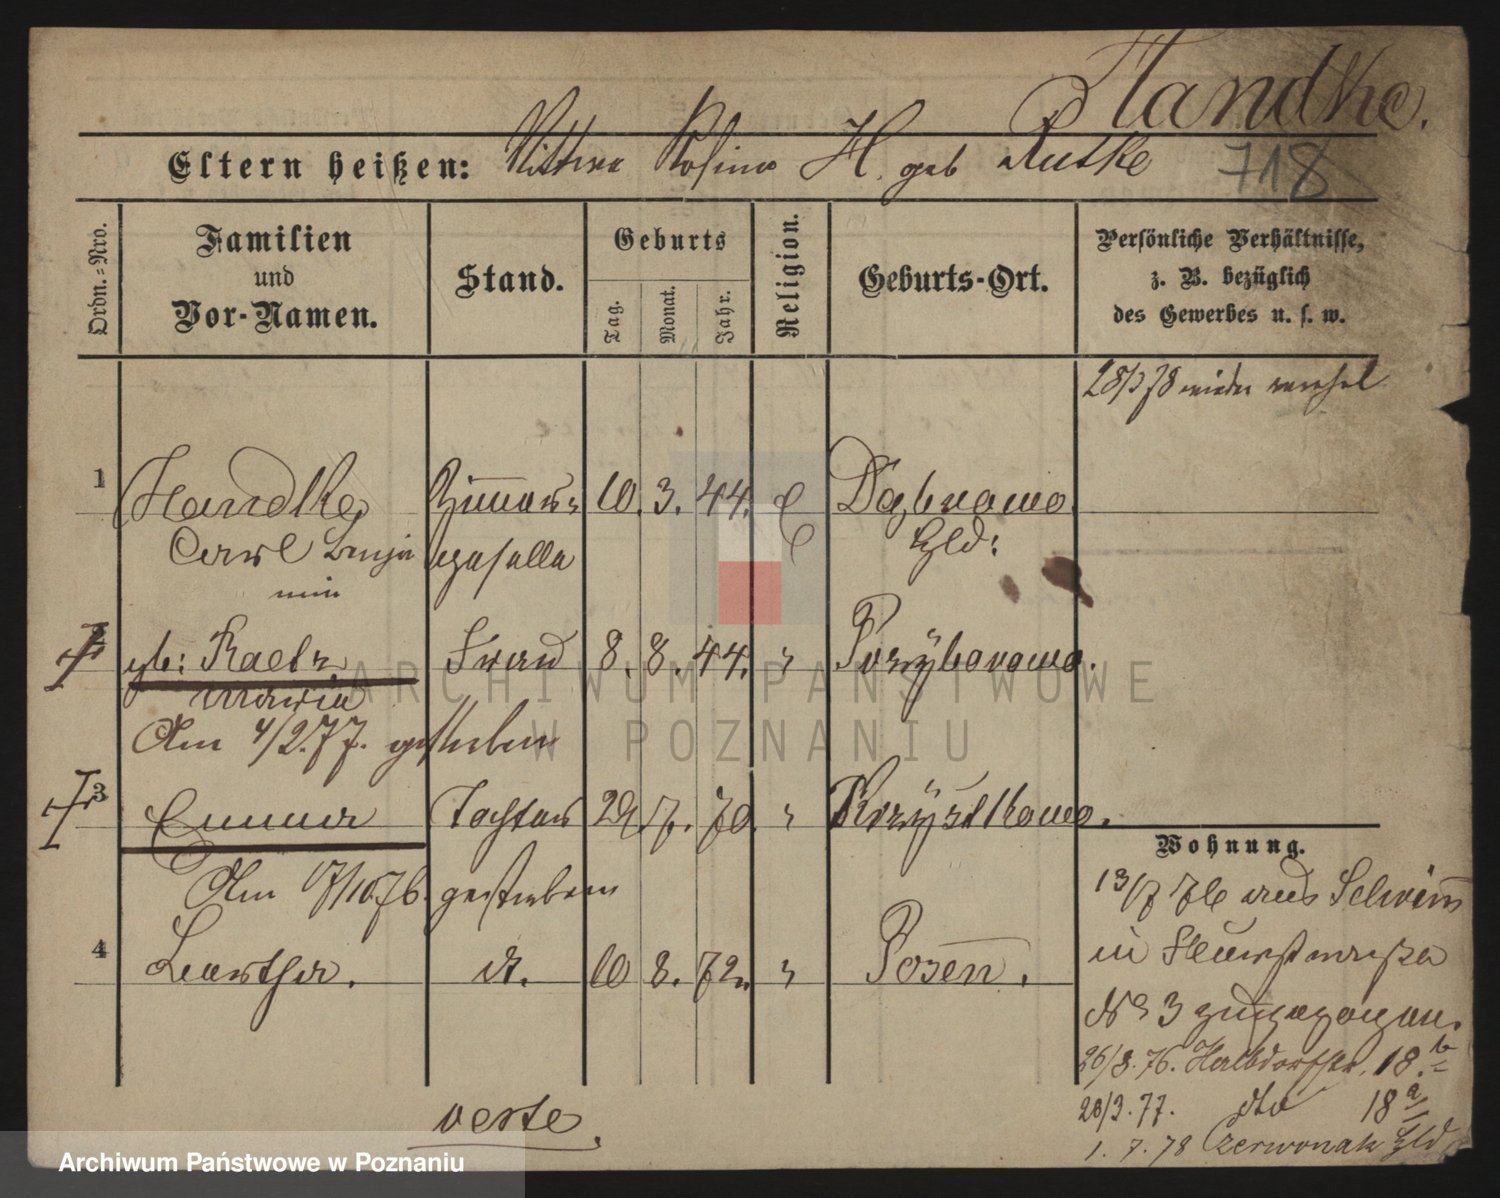 Handke.
Eltern heißen: Rosina H. geb Rutke 718
Ordn.-Nro.
Familien
und
Vor-Namen.
Stand.
Geburts
Tag.
Monat.
Jahr.
Religion.
Geburts-Ort.
Persönliche Verhältnisse,
z. B. bezüglich
des Gewerbes u. s. w.
28/3 78 wieder
1 Handke Zimmer= 10. 3. 44. Dąbrowo
Carl Benja geselle Gld:
min
2 gb: Frau 8. 8. 44. "
Maria
Am 4/2.77. gestorben
3 Emma Tochter 29. 7. 70. "
Am 17/10 76. gestorben
4 Bertha. dt. 10 8. 72. " Posen.
Wohnung.
13/7 76 aus
in
No 3 zugezogen.
26/8. 76. Halbdorfstr. 18.b
20/3. 77. dto 18a
1. 7. 78 Czerwonak Gld
verte.
ARCHIWUM PAŃSTWOWE
W POZNANIU
Archiwum Państwowe w Poznaniu